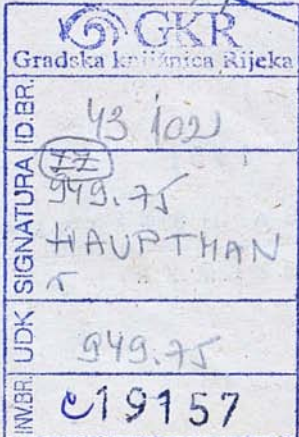 GKR
Gradska knjižnica Rijeka
ID.BR.
43 102
SIGNATURA
ZZ
949.75
HAUPTMAN
r
UDK
949.75
INV.BR.
19157